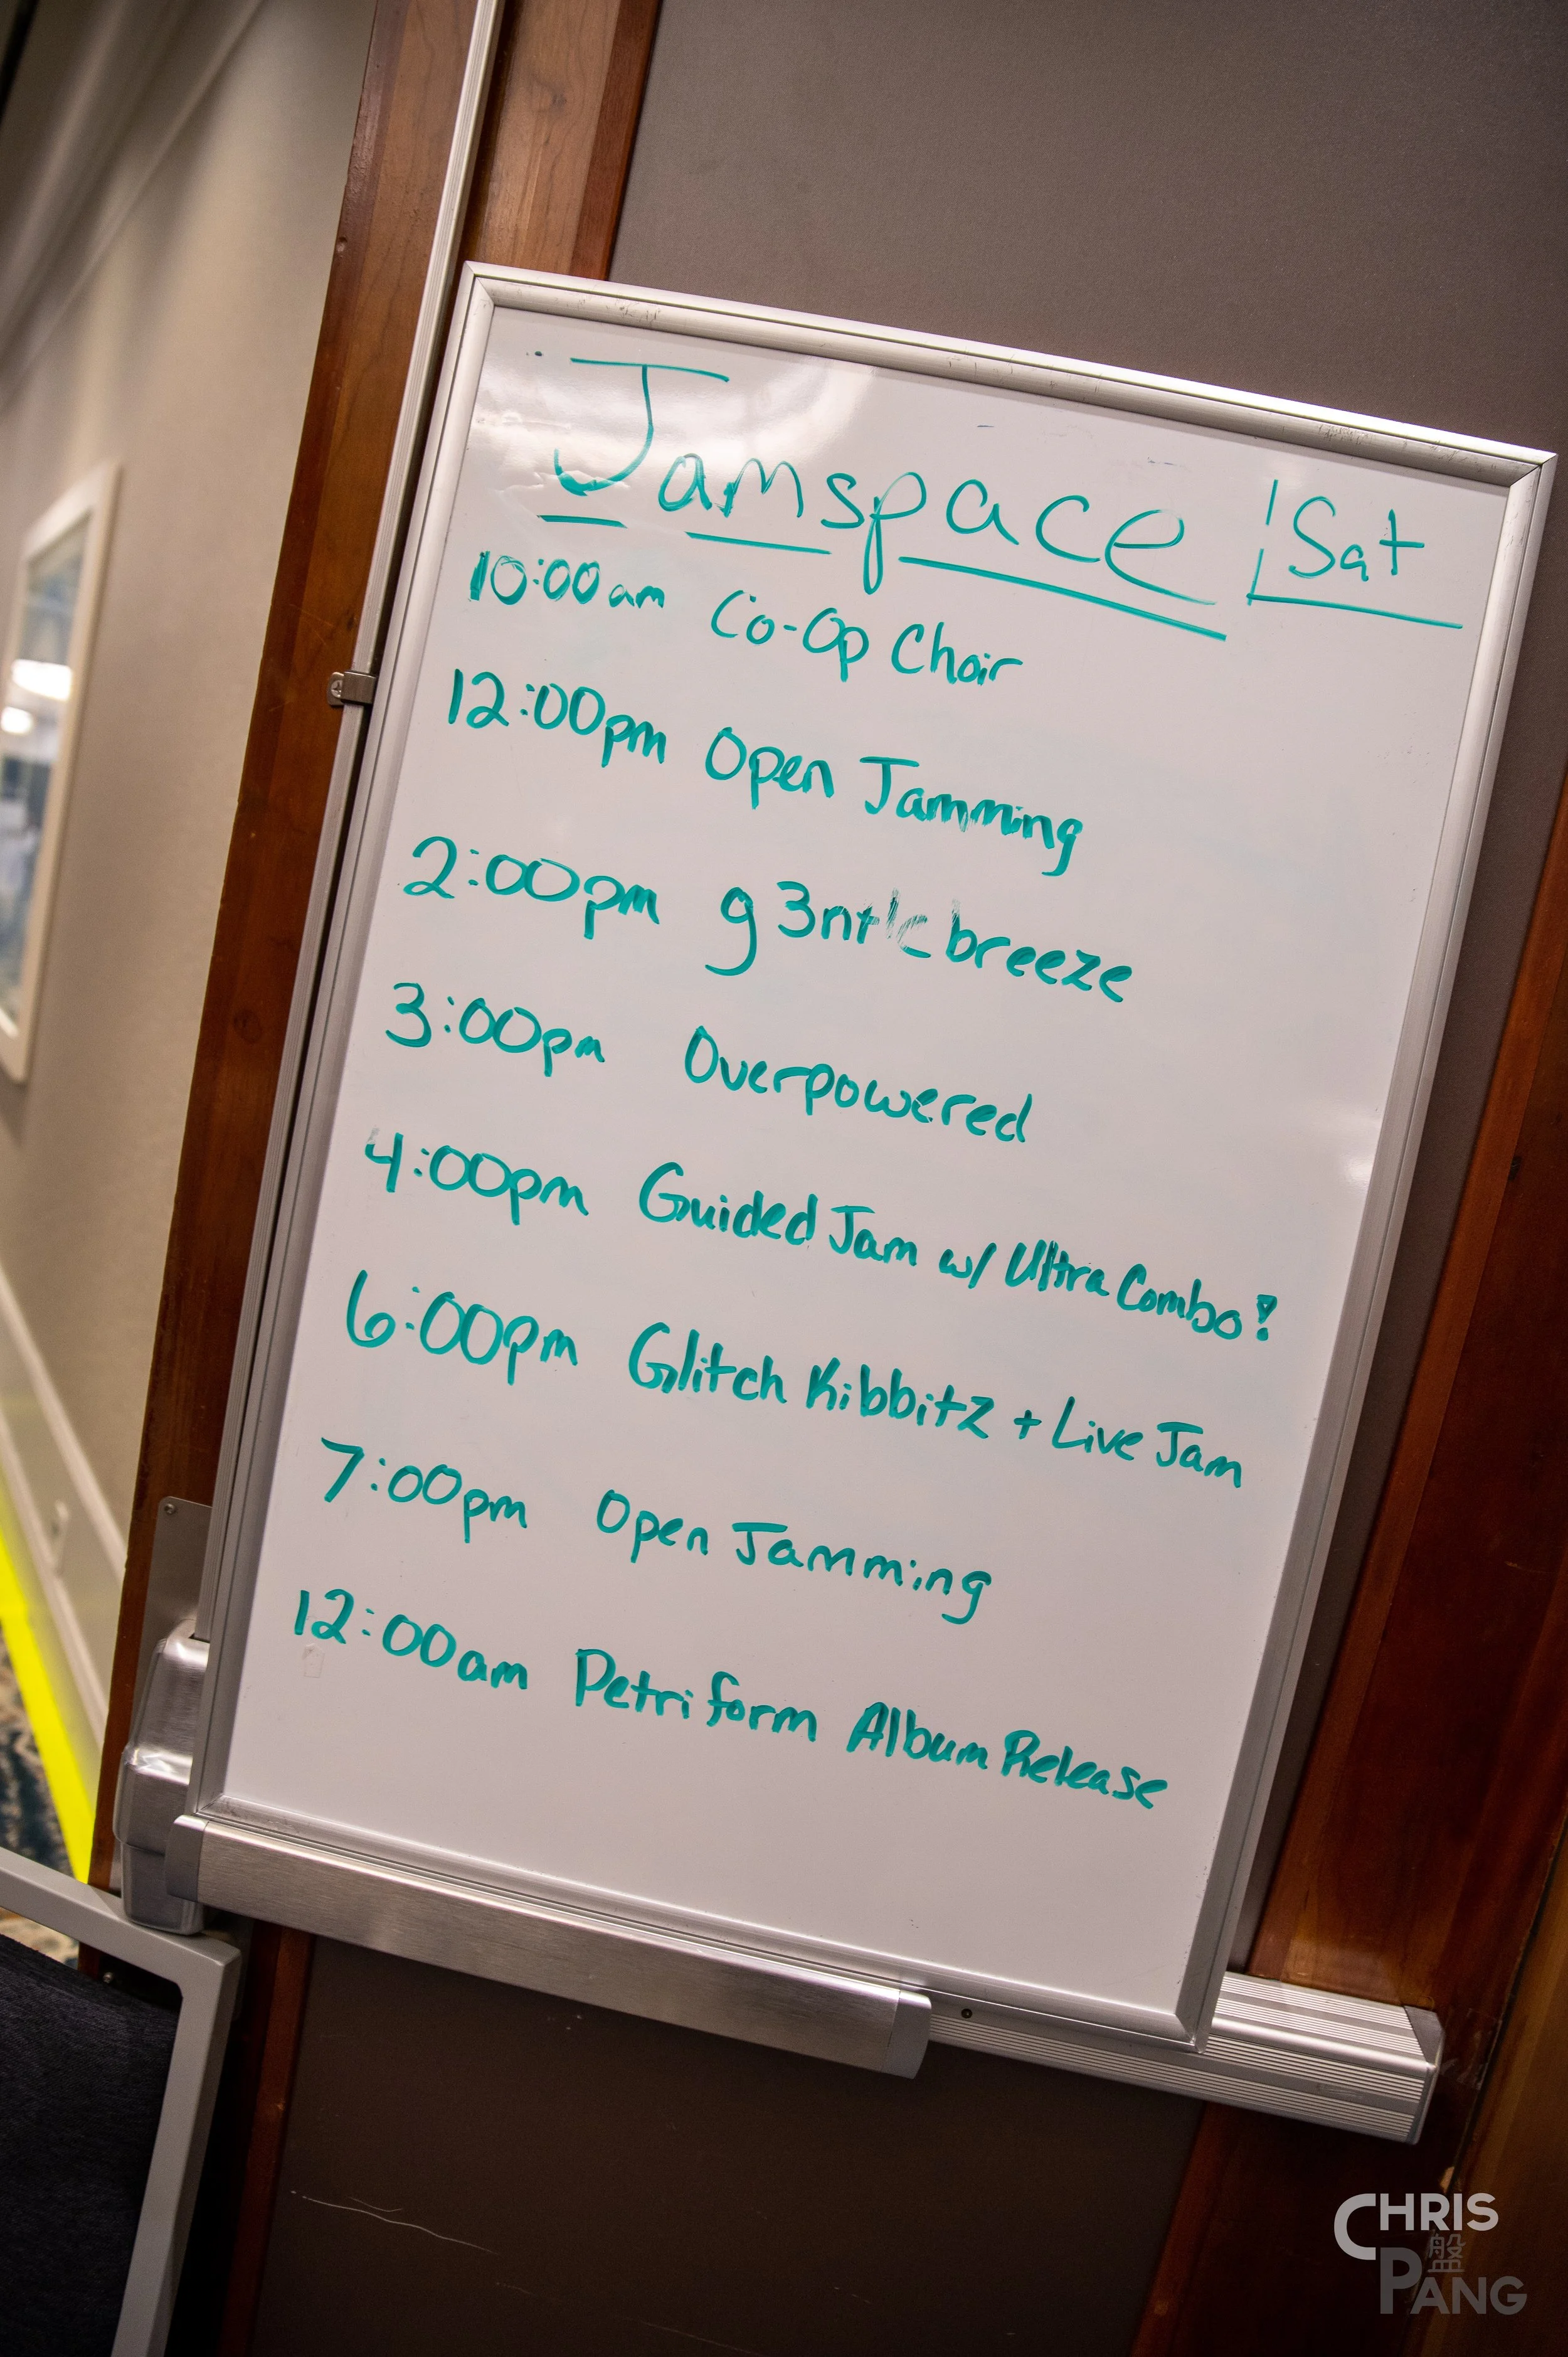 Jamspace | Sat
10:00am Co-Op Choir
12:00pm Open Jamming
2:00pm g3ntle breeze
3:00pm Overpowered
4:00pm Guided Jam w/ Ultra Combo!
6:00pm Glitch Kibbitz + Live Jam
7:00pm Open Jamming
12:00am Petriform Album Release
CHRIS
盤
PANG